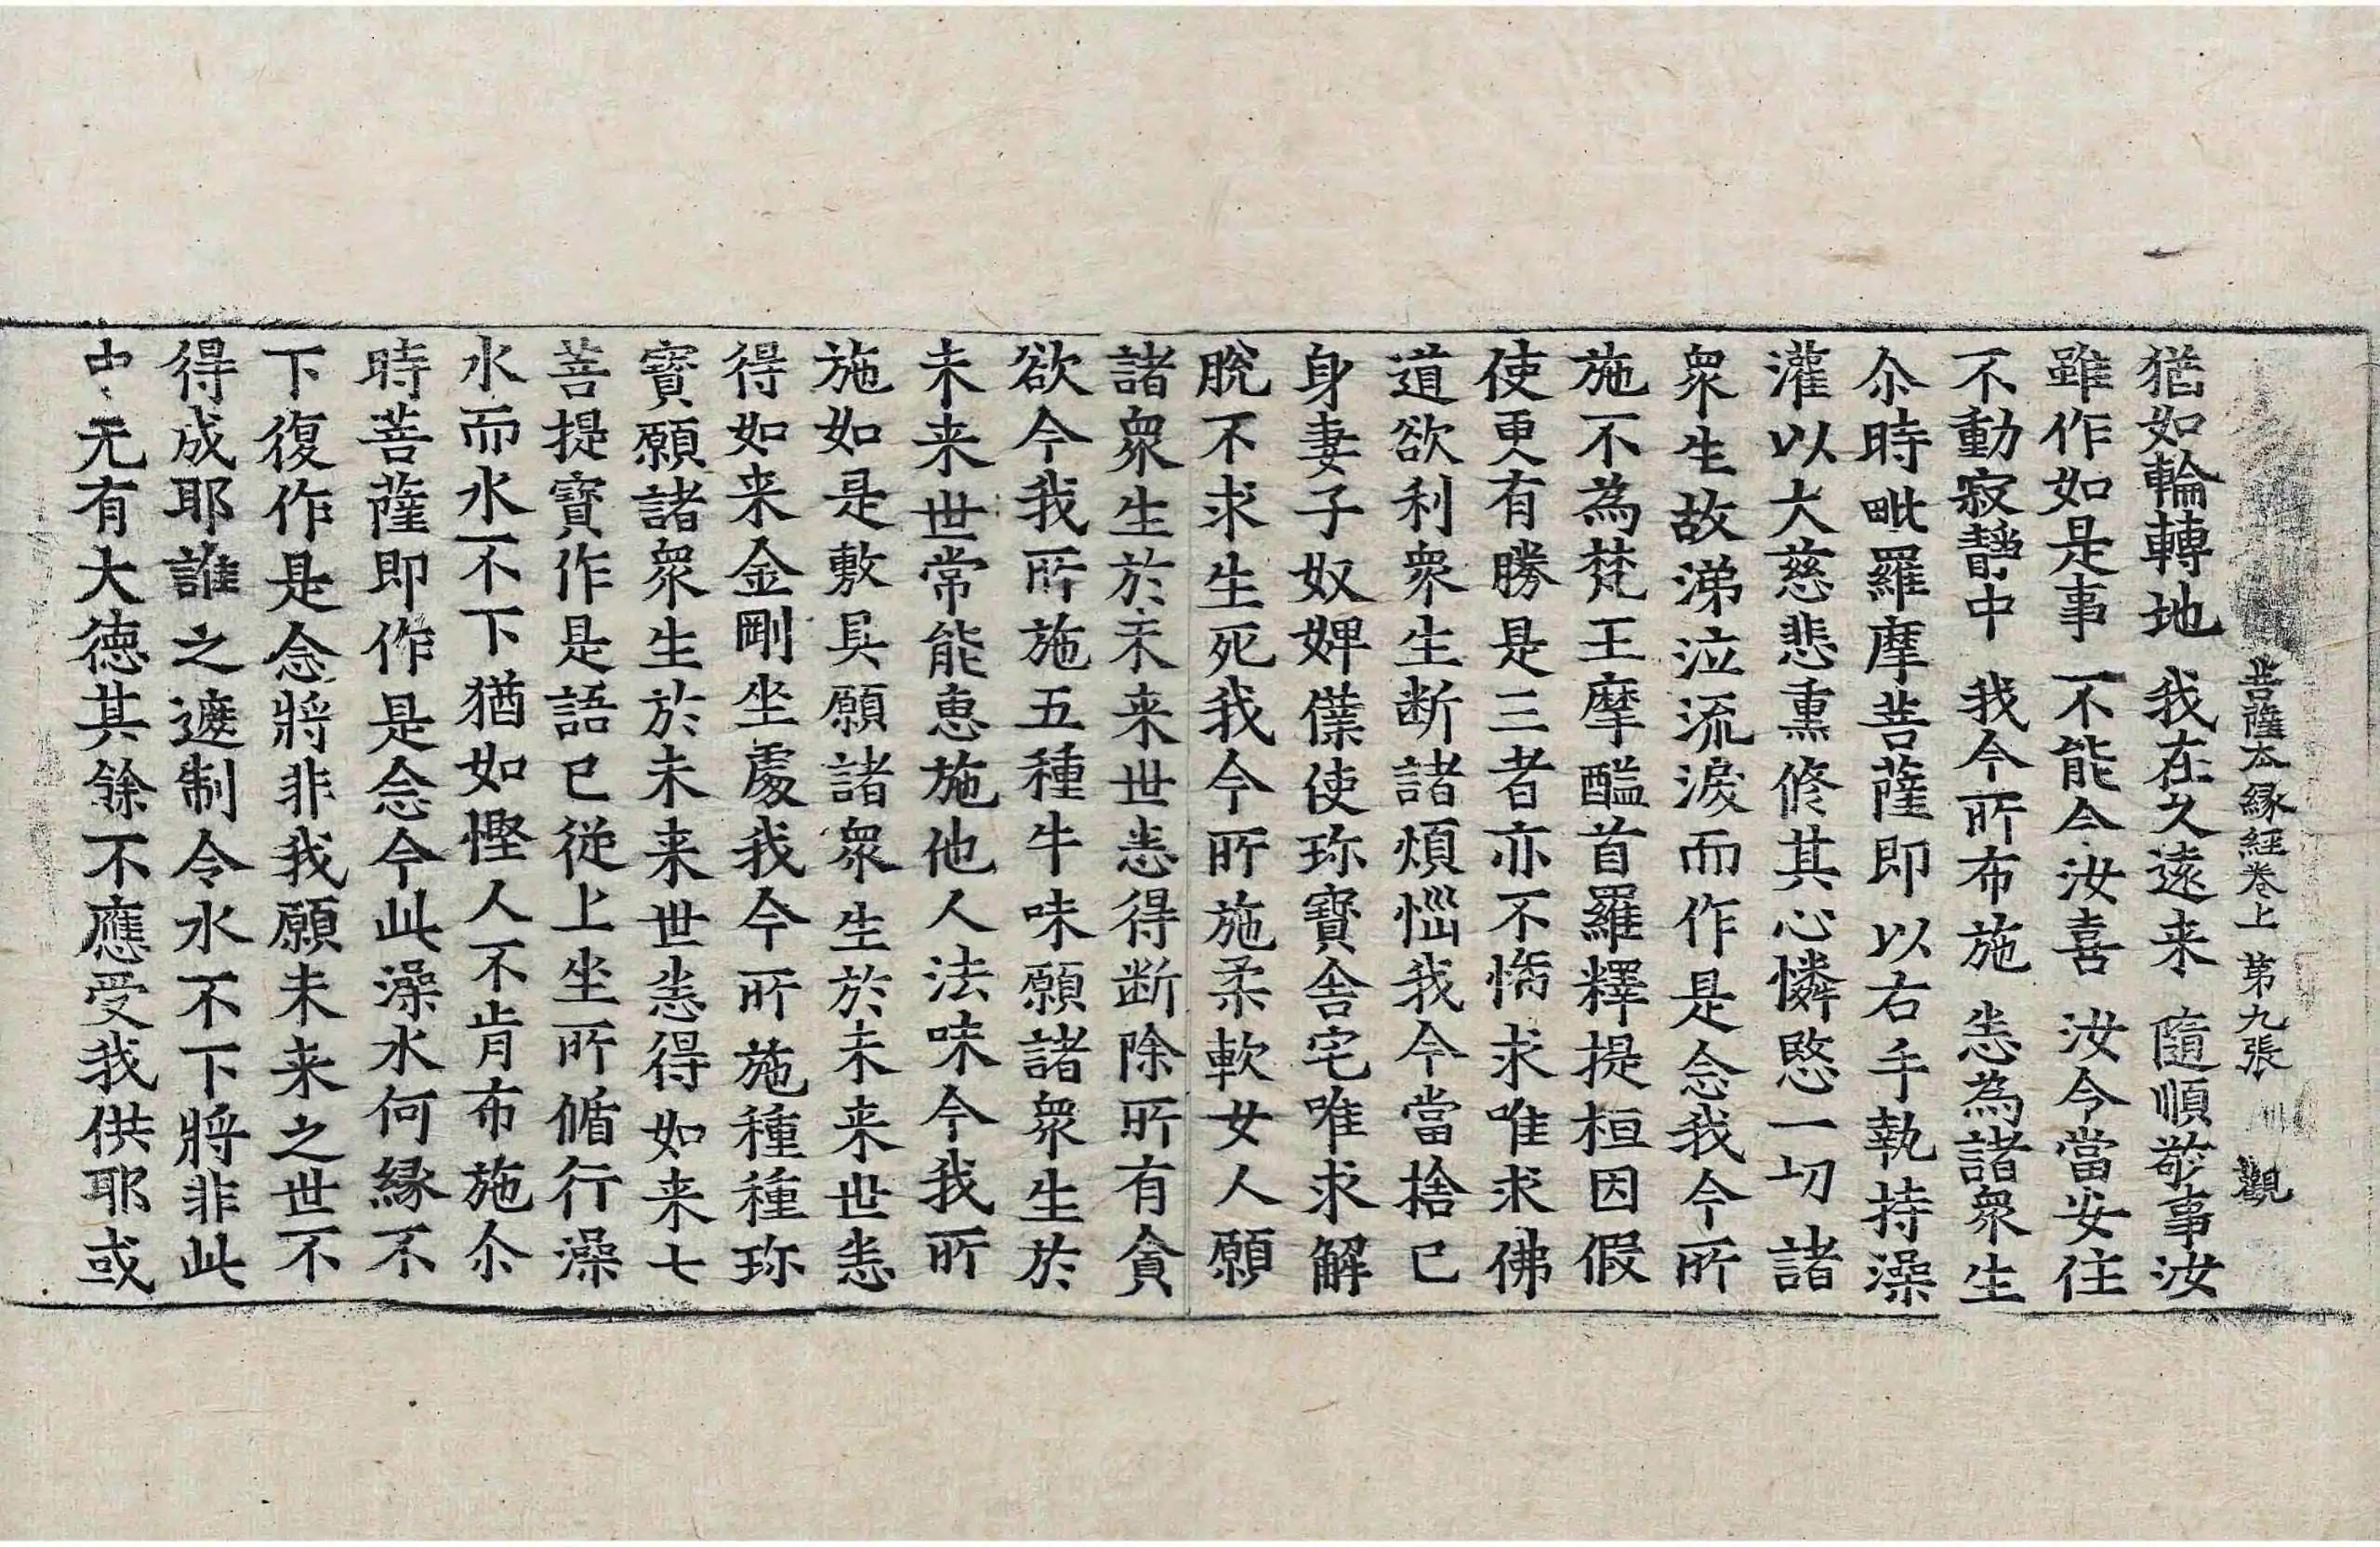 菩薩夲緣經卷上 第九張 川 觀
猶如輪轉地 我在久遠来 隨順敬事汝
雖作如是事 不能令汝喜 汝今當安住
不動寂靜中 我今所布施 恙為諸衆生
尒時毗羅摩菩薩即以右手執持澡
灌以大慈悲熏修其心憐愍一切諸
衆生故涕泣流淚而作是念我今所
施不為梵王摩醯首羅釋提桓因假
使更有勝是三者亦不悕求唯求佛
道欲利衆生断諸煩惱我今當捨己
身妻子奴婢僕使珎寶舍宅唯求解
脫不求生死我今所施柔軟女人願
諸衆生於未来世恙得断除所有貪
欲今我所施五種牛味願諸衆生於
未来世常能惠施他人法味今我所
施如是敷具願諸衆生於未来世恙
得如来金剛坐處我今所施種種珎
寶願諸衆生於未来世恙得如来七
菩提寶作是語已從上坐所循行澡
水而水不下猶如慳人不肯布施尒
時菩薩即作是念今此澡水何緣不
下復作是念將非我願未来之世不
得成耶誰之遮制令水不下將非此
中无有大德其餘不應受我供耶或